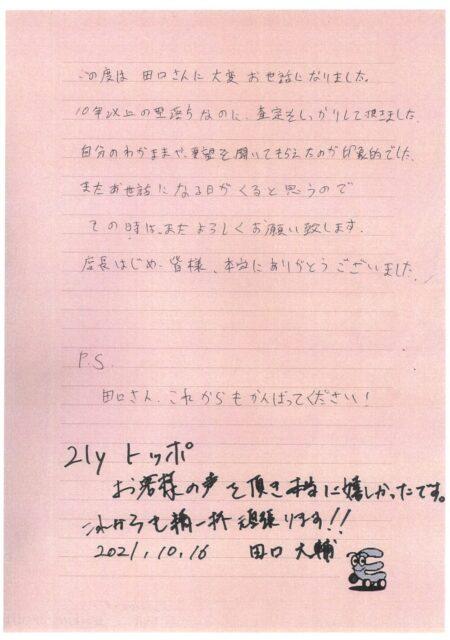 この度は 田口さんに大変お世話になりました。
10年以上の型落ちなのに、査定をしっかりして頂きました。
自分のわがままや、要望を聞いてもらえたのが印象的でした。
またお世話になる日がくると思うので
その時は、またよろしくお願い致します。
店長はじめ、皆様、本当にありがとうございました。
P.S.
田口さん、これからもがんばってください！
21y トッポ
お客様の声を頂き本当に嬉しかったです。
これからも精一杯頑張ります!!
2021.10.16 田口 大輔